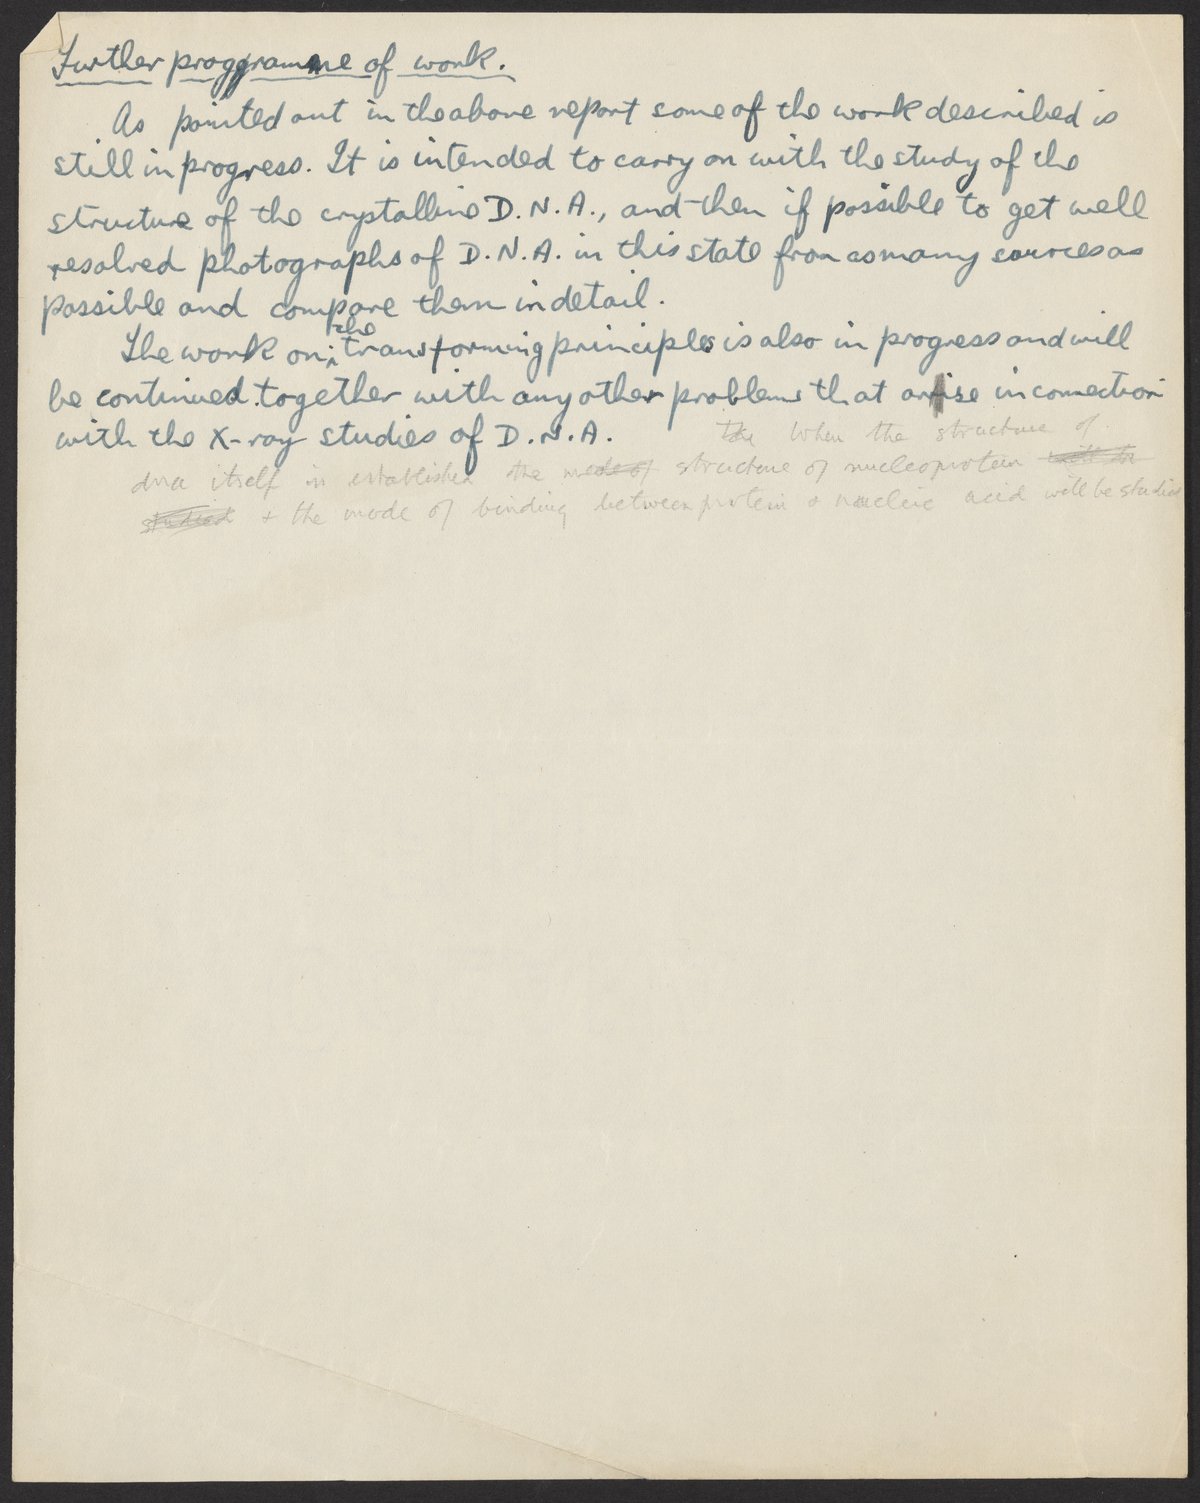 Further programme of work.
As pointed out in the above report some of the work described is
still in progress. It is intended to carry on with the study of the
structure of the crystalline D.N.A., and then if possible to get well
resolved photographs of D.N.A. in this state from as many sources as
possible and compare them in detail.
the
The work on transforming principles is also in progress and will
be continued together with any other problems that arise in connection
with the X-ray studies of D.N.A. The When the structure of
dna itself is established the mode of structure of nucleoprotein will be
studied + the mode of binding between protein + nucleic acid will be studied